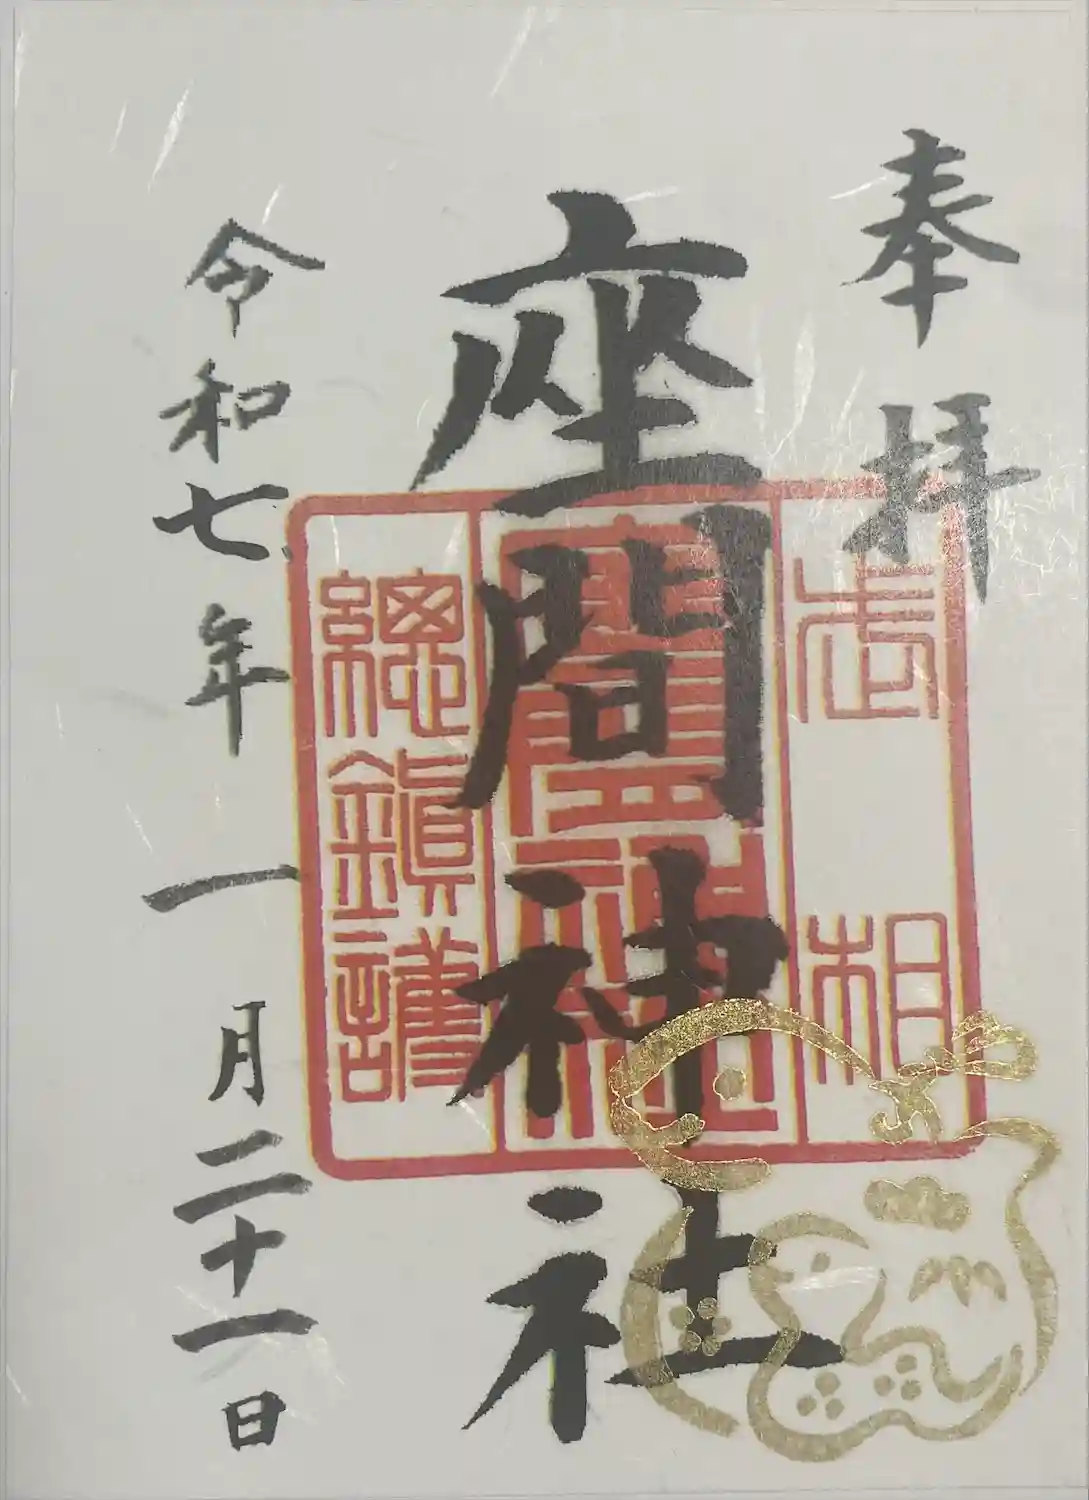 奉拝
座間神社
令和七年一月二十一日
相武
座間神社
總鎮護